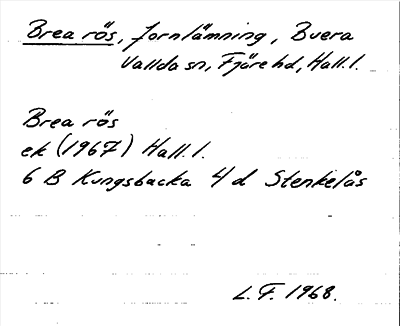 Brea rös, fornlämning, Buera
Vallda sn, Fjäre hd, Hall. l.
Brea rös
ek (1967) Hall. l.
6 B Kungsbacka 4 d Stenkelås
L.F. 1968.